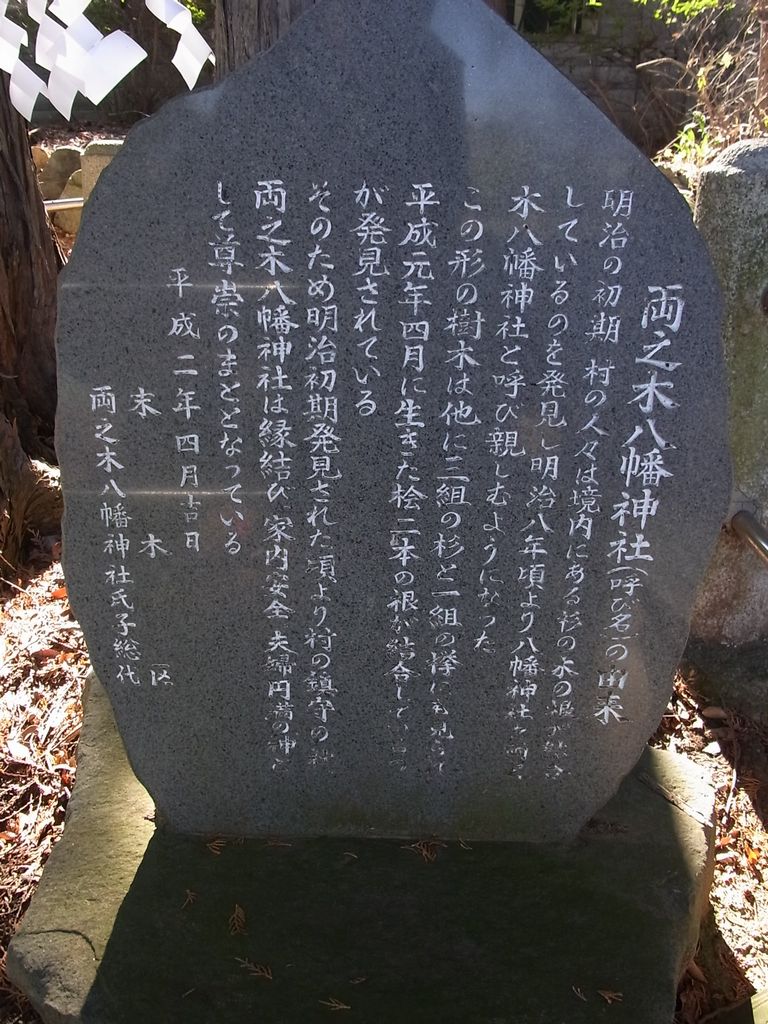 両之木八幡神社(呼び名)の由来
明治の初期 村の人々は境内にある杉の木の根が結合
しているのを発見し明治八年頃より八幡神社を両之
木八幡神社と呼び親しむようになった
この形の樹木は他に三組の杉と一組の欅にも見られ
平成元年四月に生きた桧二本の根が結合しているの
が発見されている
そのため明治初期発見された頃より村の鎮守の神
両之木八幡神社は縁結び 家内安全 夫婦円満の神と
して尊崇のまととなっている
平成二年四月吉日
末木区
両之木八幡神社氏子総代